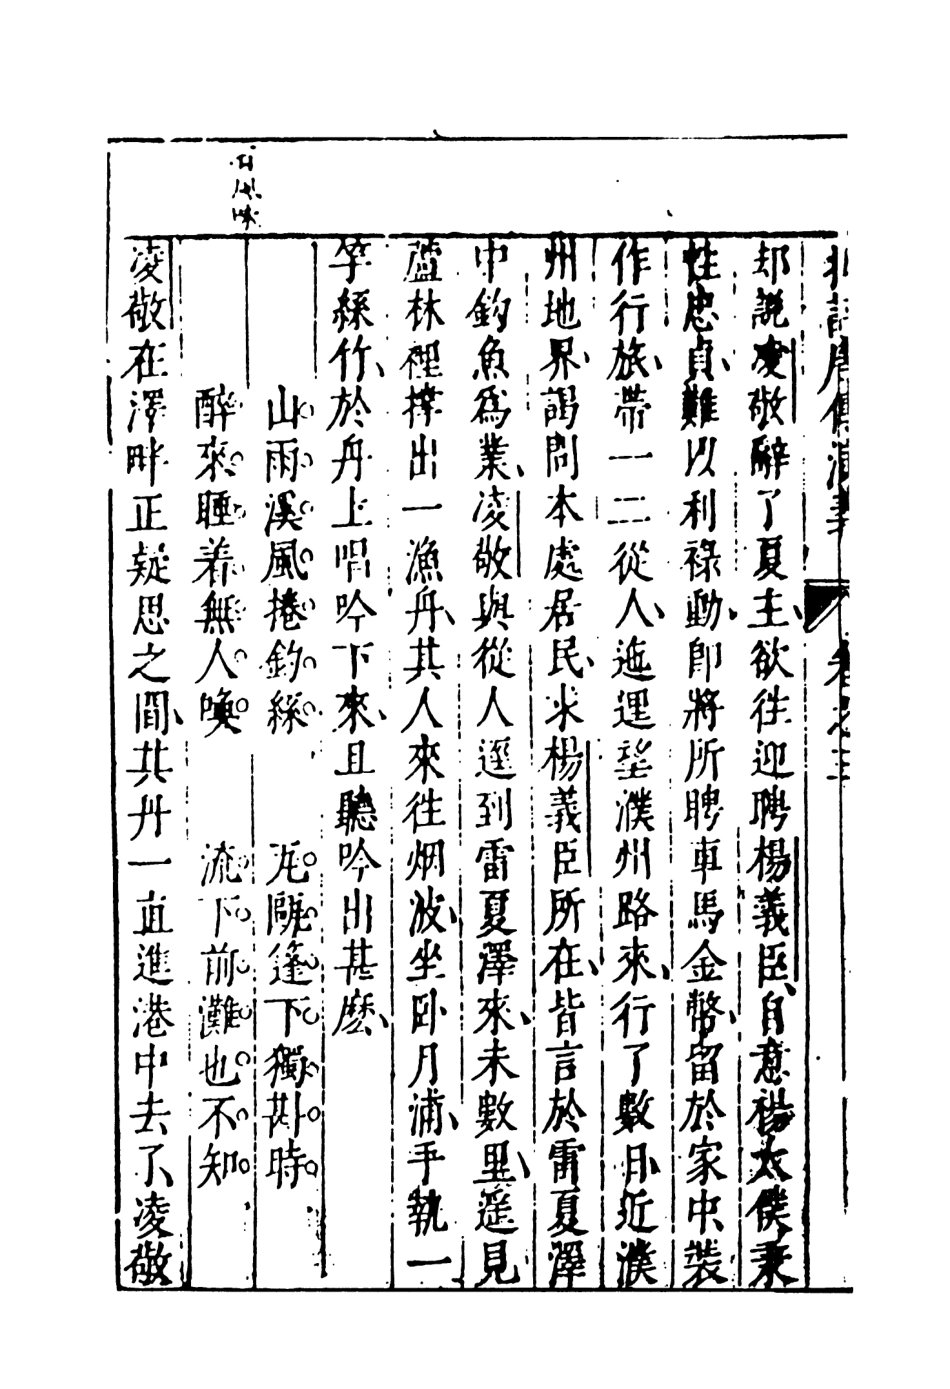 批評唐傳演義 卷之三
却說凌敬辭了夏主欲徃迎聘楊義臣自意楊太僕秉
性忠貞難以利祿動即將所聘車馬金幣留於家中裝
作行旅帶一二從人迤逞望濮州路來行了數日近濮
州地界謁問本處居民求楊義臣所在皆言於雷夏澤
中釣魚爲業凌敬與從人逕到雷夏澤來未數里遥見
蘆林裡撑出一漁舟其人來徃烟波坐卧月浦手執一
竿絲竹於舟上唱吟下來且聽吟出甚麽
山雨溪風捲釣絲 瓦甌篷下獨斟時
醉來睡着無人喚 流下前灘也不知
凌敬在澤畔正疑思之間其舟一直進港中去了凌敬
有風味